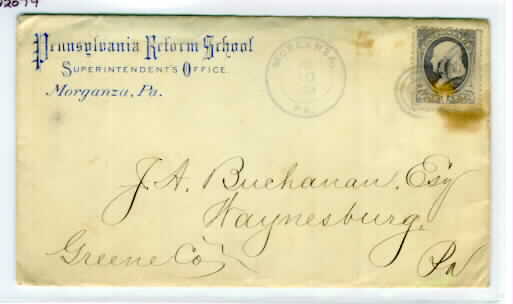 Pennsylvania Reform School
SUPERINTENDENT'S OFFICE.
Morganza, Pa.
MORGANZA
PA.
J. A. Buchanan, Esq
Waynesburg,
Greene Co
Pa